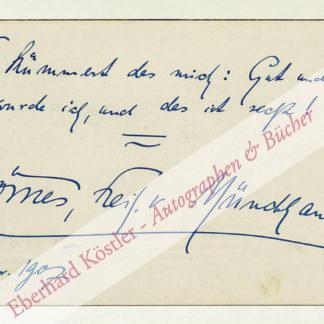 kümmert das mich: Gut und
wurde ich, und das ist recht!
Börries, Freih. v. Münchhau
r. 1909
Eberhard Köstler - Autographen & Bücher